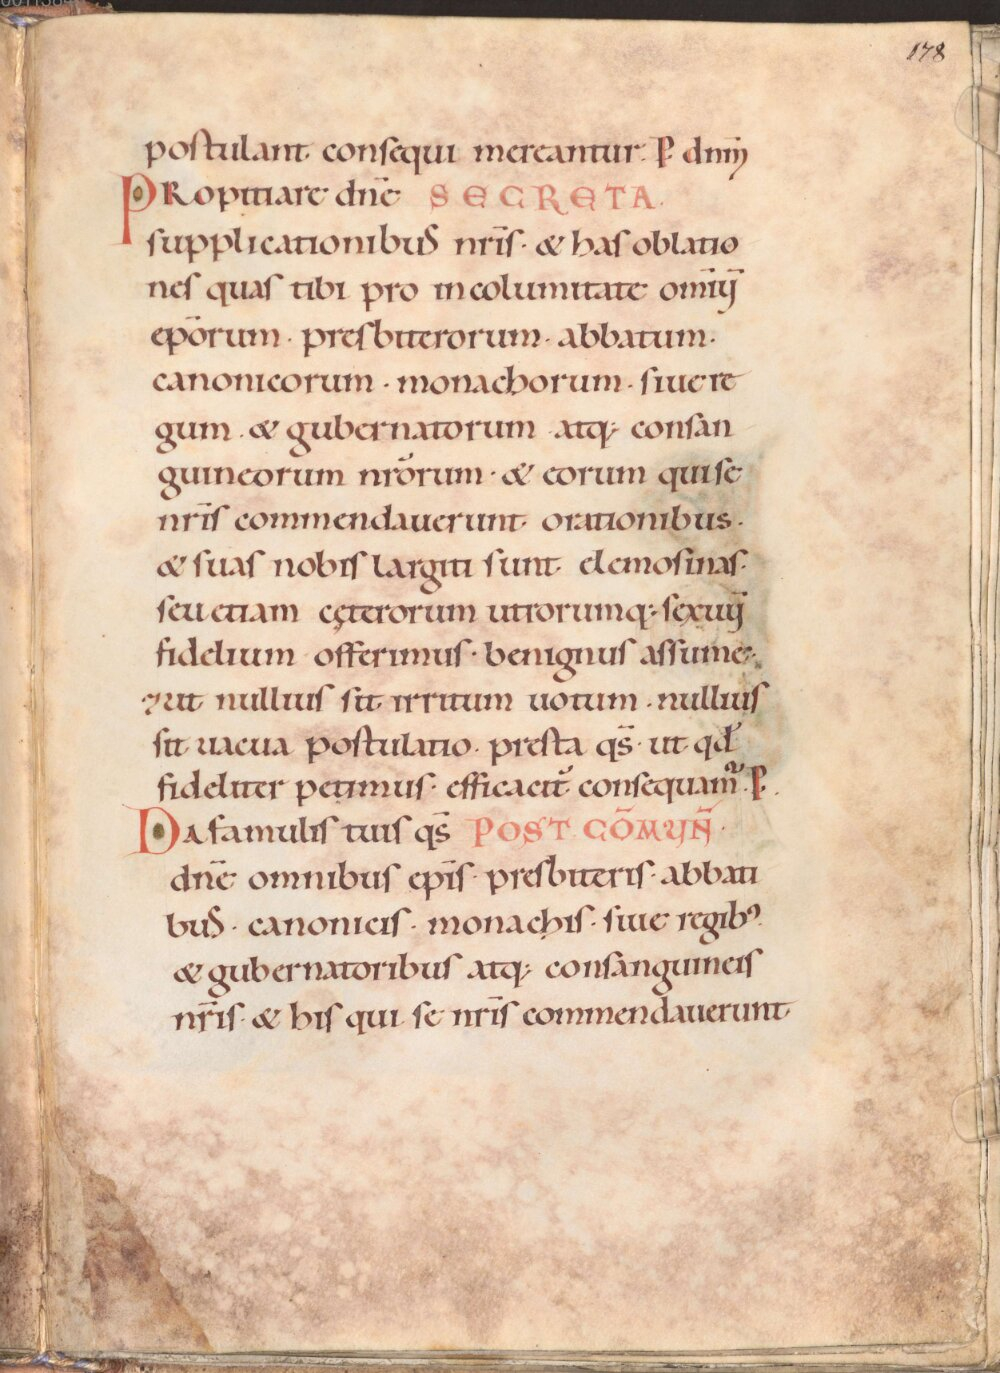 178
postulant consequi mereantur. P dnm̄
PRopitiare dnē SECRETA.
supplicationibus nrīs · & has oblatio
nes quas tibi pro incolumitate omīū
epōrum · presbiterorum · abbatum ·
canonicorum · monachorum · siue re
gum · & gubernatorum atq; consan
guineorum nrōrum · & eorum qui se
nrīs commendauerunt orationibus ·
& suas nobis largiti sunt elemosinas ·
seu etiam cęterorum utrorumq; sexuū
fidelium offerimus · benignus assume ·
ut nullius sit irritum uotum · nullius
sit uacua postulatio · presta qs̄ · ut qđ
fideliter petimus · efficacit̄ consequam̄ · P.
Da famulis tuis qs̄ POST CŌMUÑ ·
dnē omnibus epīs · presbiteris · abbati
bus · canonicis · monachis · siue regibꝰ ·
& gubernatoribus atq; consanguineis
nrīs · & his qui se nrīs commendauerunt